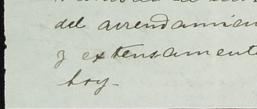 del arrendamien
y extensamente
hoy.